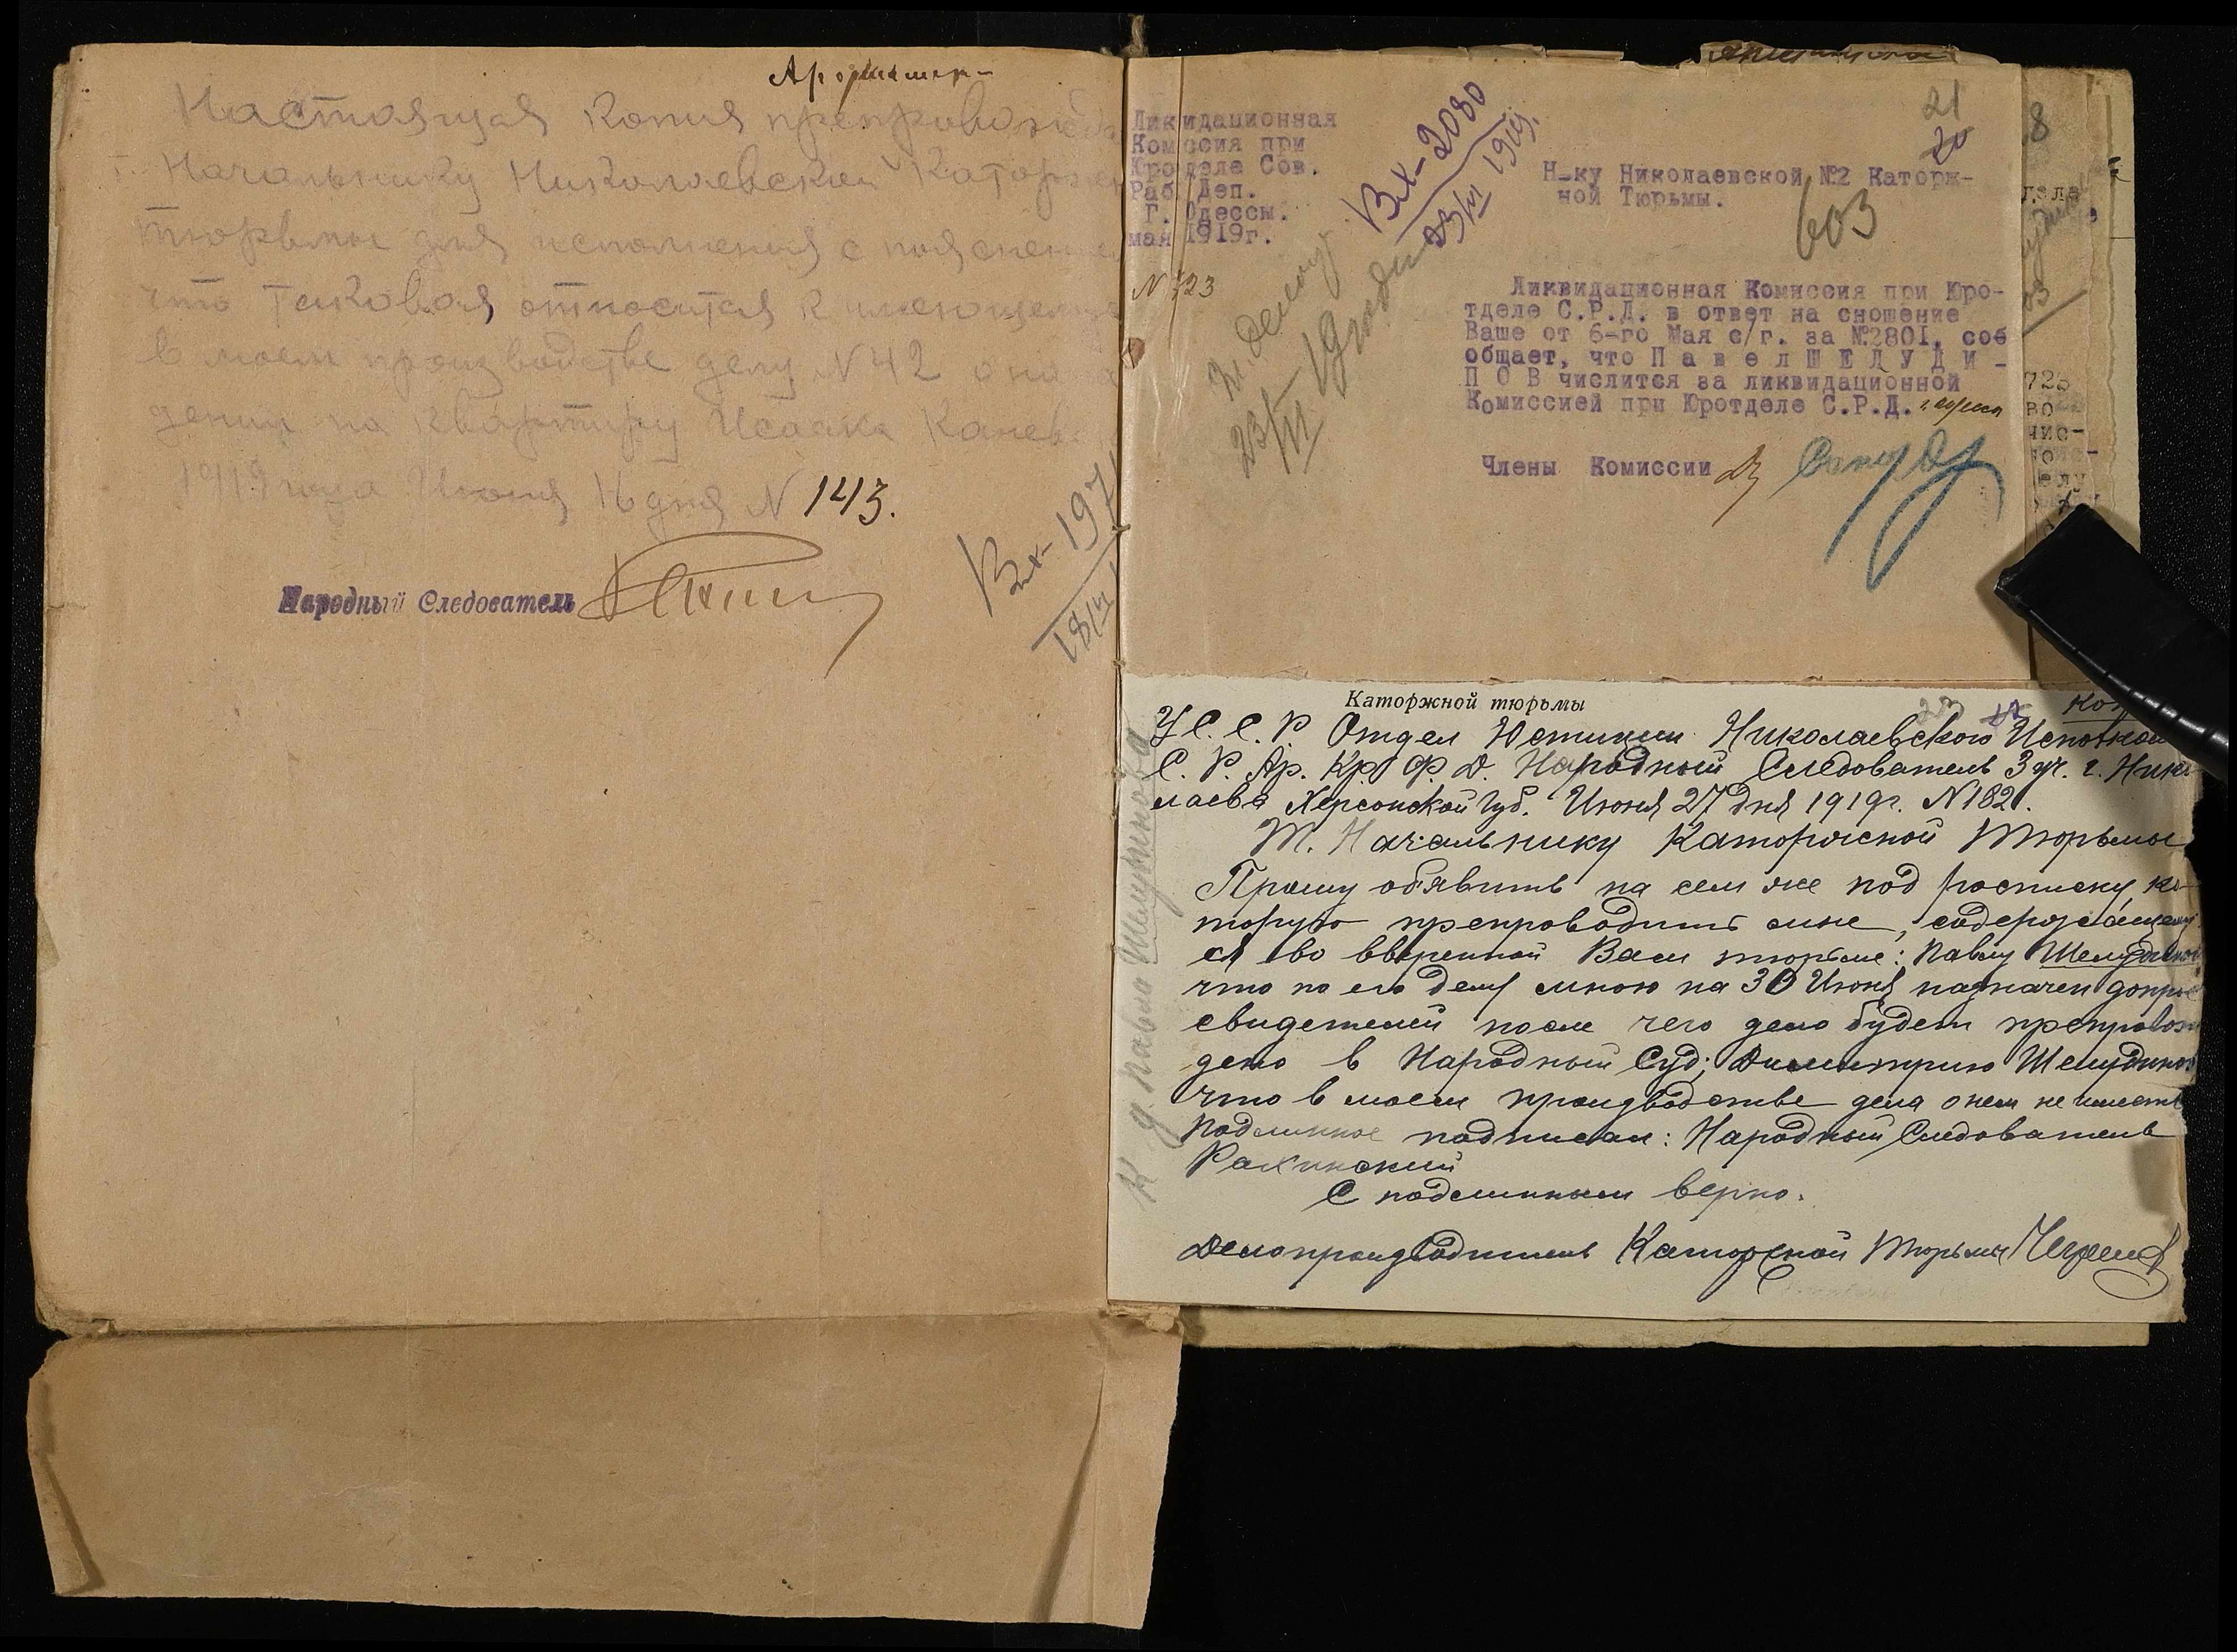 Настоящая копия препровожд
Т. Начальнику Николаевской Каторжн
тюрьмы для исполнения с пояснени
что таковая относится к имеющему
в моем производстве делу N 42 о на
дении на квартиру Исаака Канев
1919 года Июня 16 дня N 143.
Народный Следователь
Вх-197
18/VI
Ликвидационная
Комиссия при
Юротделе Сов.
Раб. Деп.
Г. Одессы.
мая 1919г.
N 723
Вх-2080
23/VI 1919г.
К делу
23/VI-19
21
20
Н-ку Николаевской №2 Каторж-
ной Тюрьмы.
603
Ликвидационная Комиссия при Юро-
тделе С.Р.Д. в ответ на сношение
Ваше от 6-го Мая с/г. за №2801, соо
общает, что П а в е л Ш Е Л У Д И -
П О В числится за ликвидационной
Комиссией при Юротделе С.Р.Д.
Члены Комиссии
8
725
во
чис-
Каторжной тюрьмы
Коп
У С. С. Р. Отдел Юстиции Николаевского Исполком
С. Р. Ар. Кр. Ф. Д. Народный Следователь 3 уч. г. Нико
лаева Херсонской губ. Июня 27 дня 1919г. N 182.
Т. Начальнику Каторжной Тюрьмы
Прошу об'явить на сем же под росписку, ко-
торую препроводить мне, содержащему
ся во вверенной Вам тюрьме: Павлу Шелудипов
что по его делу мною на 30 Июня назначен допрос
свидетелей после чего дело будет препровож
дено в Народный Суд; Димитрию Шелудипов
что в моем производстве дела о нем не имеется
Подлинное подписал: Народный Следователь
Рахинский
С подлинным верно.
Делопроизводитель Каторжной Тюрьмы
К д Павла